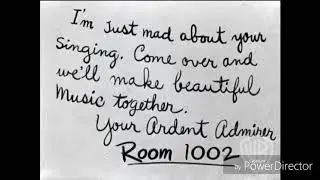 I'm just mad about your
singing. Come over and
we'll make beautiful
music together.
Your Ardent Admirer
Room 1002
by PowerDirector